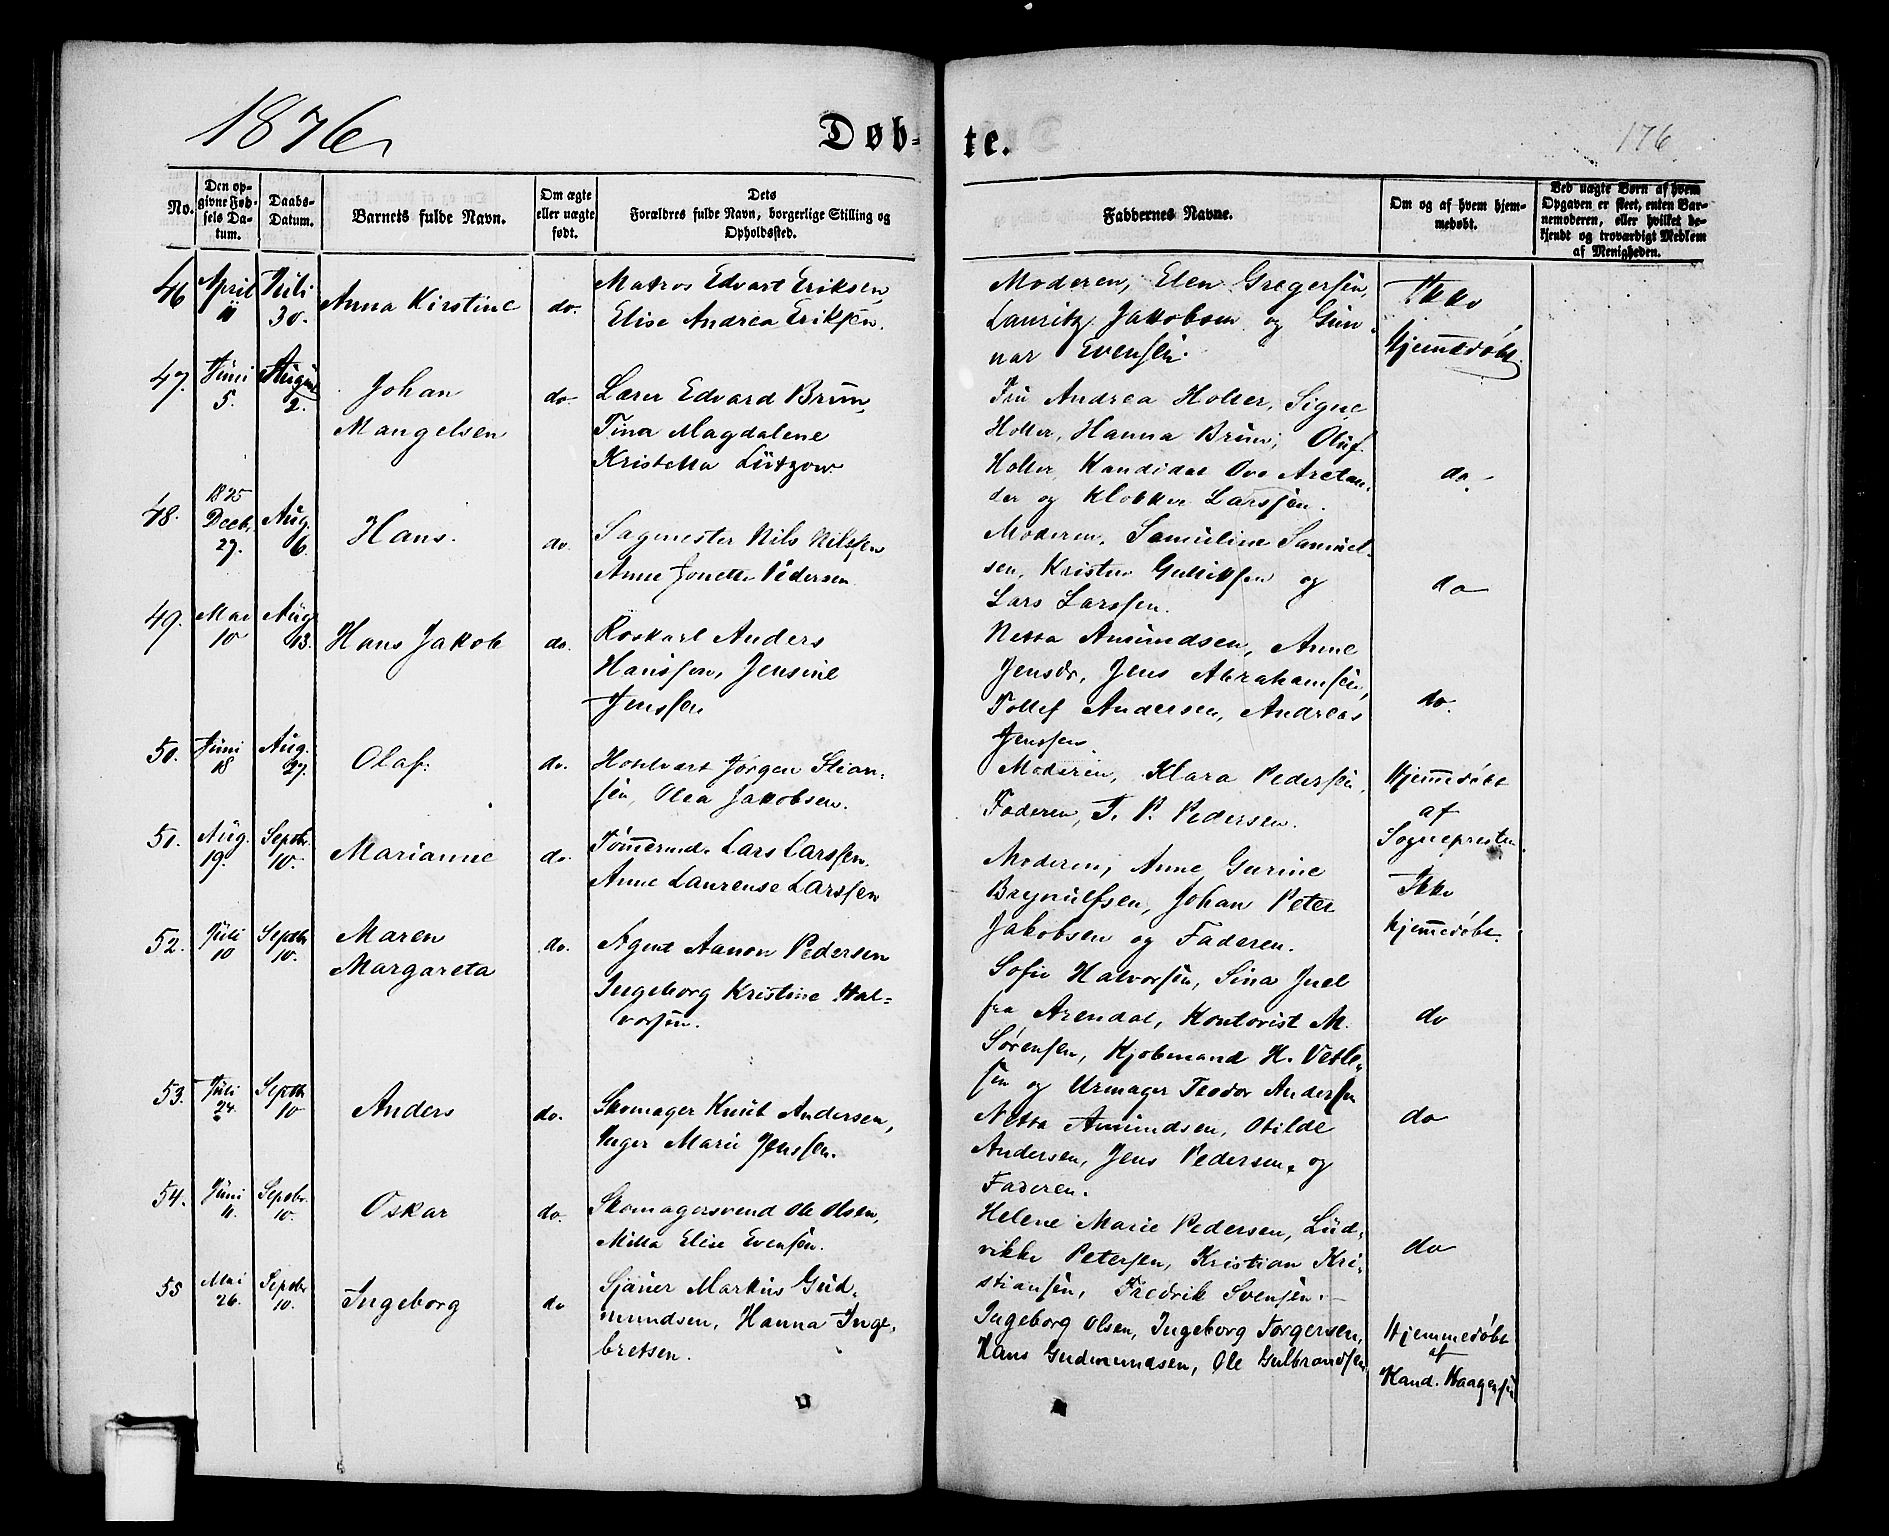 1876
Døb-
te.
176
No.
Den op-
givne Fød-
sels Da-
tum.
Daabs-
Datum.
Barnets fulde Navn.
Om ægte
eller uægte
født.
Dets
Forældres fulde Navn, borgerlige Stilling og
Opholdssted.
Faddernes Navne.
Om og af hvem hjem-
medøbt.
Ved uægte Børn af hvem
Opgaven er skeet, enten Bar-
nemoderen, eller hvilket be-
kjendt og troværdigt Medlem
af Menigheden.
46
April
11
Juli
30.
Anna Kirstine
do.
Matros Edvart Eriksen,
Elise Andrea Eriksen.
Moderen, Elen Gregersen,
Lauritz Jakobsen og Gun-
nar Evensen.
Ikke
hjemmedøbt.
47.
Juni
5.
August
2.
Johan
Mangelsen
do.
Lærer Edvard Brun,
Tina Magdalene
Kristella Lützow
Fru Andrea Holter, Signe
Holter, Hanna Brun, Oluf
Holter, Kandidat Ove Arctan-
der og Klokker Larssen.
do.
48.
1875
Decb.
27.
Aug.
6.
Hans.
do.
Sagmester Nils Nilssen
Anne Jonette Pedersen
Moderen, Samuline Samuel-
sen, Kristen Gulliksen og
Lars Larssen.
do
49.
Mai
10
Aug.
13.
Hans Jakob
do.
Roskarl Anders
Hanssen, Jensine
Jenssen
Netta Amundsen, Anne
Jensdr, Jens Abrahamsen,
Tollef Andersen, Andreas
Jenssen.
do.
50.
Juni
18
Aug.
27.
Olaf.
do.
Jørgen Stian-
sen, Olea Jakobsen.
Moderen, Klara Pedersen,
Faderen, T. P. Pedersen.
Hjemmedøbt
af
Sognepresten.
51.
Aug.
19.
Septbr.
10.
Marianne
do.
Tømmermd. Lars Larssen.
Anne Laurense Larssen
Moderen, Anne Gurine
Brynulfsen, Johan Peter
Jakobsen og Faderen.
Ikke
hjemmedøbt.
52.
Juli
10
Septbr
10.
Maren
Margareta
do.
Agent Aanon Pedersen
Ingeborg Kristine Hal-
vorsen.
Sofie Halvorsen, Sina Juel
fra Arendal, Kontorist M.
Sørensen, Kjøbmand H. Vetle-
sen og Urmager Teodor Andersen
do
53.
Juli
24.
Septbr
10
Anders
do.
Skomager Knut Andersen,
Inger Marie Jenssen.
Netta Amundsen, Otilde
Andersen, Jens Pedersen, og
Faderen.
do
54.
Juni
11.
Septbr.
10.
Oskar
do.
Skomagersvend Ole Olsen,
Milla Elise Evensen.
Helene Marie Pedersen, Lud-
vikke Petersen, Kristian Kri-
stiansen, Fredrik Svensen.
do
55
Mai
26.
Septbr
10.
Ingeborg
do
Sjauer Markus Gud-
mundsen, Hanna Inge-
bretsen.
Ingeborg Olsen, Ingeborg Torgersen,
Hans Gudmundsen, Ole Gulbrandsen.
Hjemmedøbt
af
Kand. Haagensen